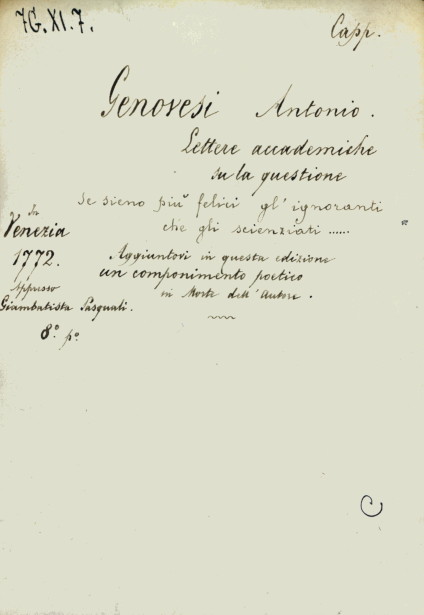 7G.XI.7.
Capp.
Genovesi Antonio.
Lettere accademiche
su la questione
se sieno più felici gl' ignoranti
che gli scienziati ......
In
Venezia
1772.
Appresso
Giambatista Pasquali.
8.° p.°
Aggiuntovi in questa edizione
un componimento poetico
in Morte dell' Autore.
C